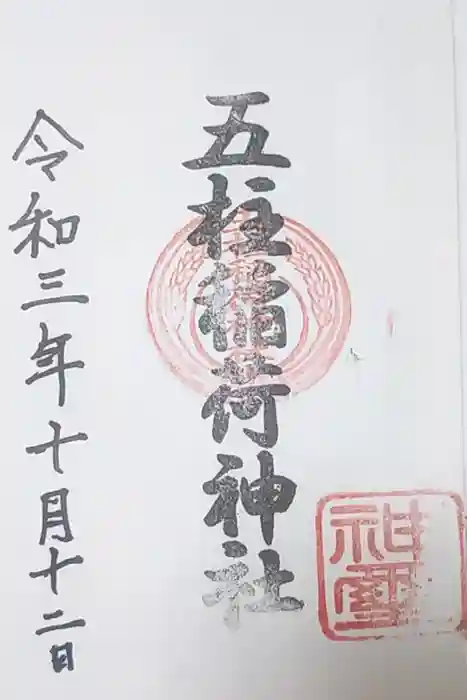 五柱稲荷神社
令和三年十月十二日